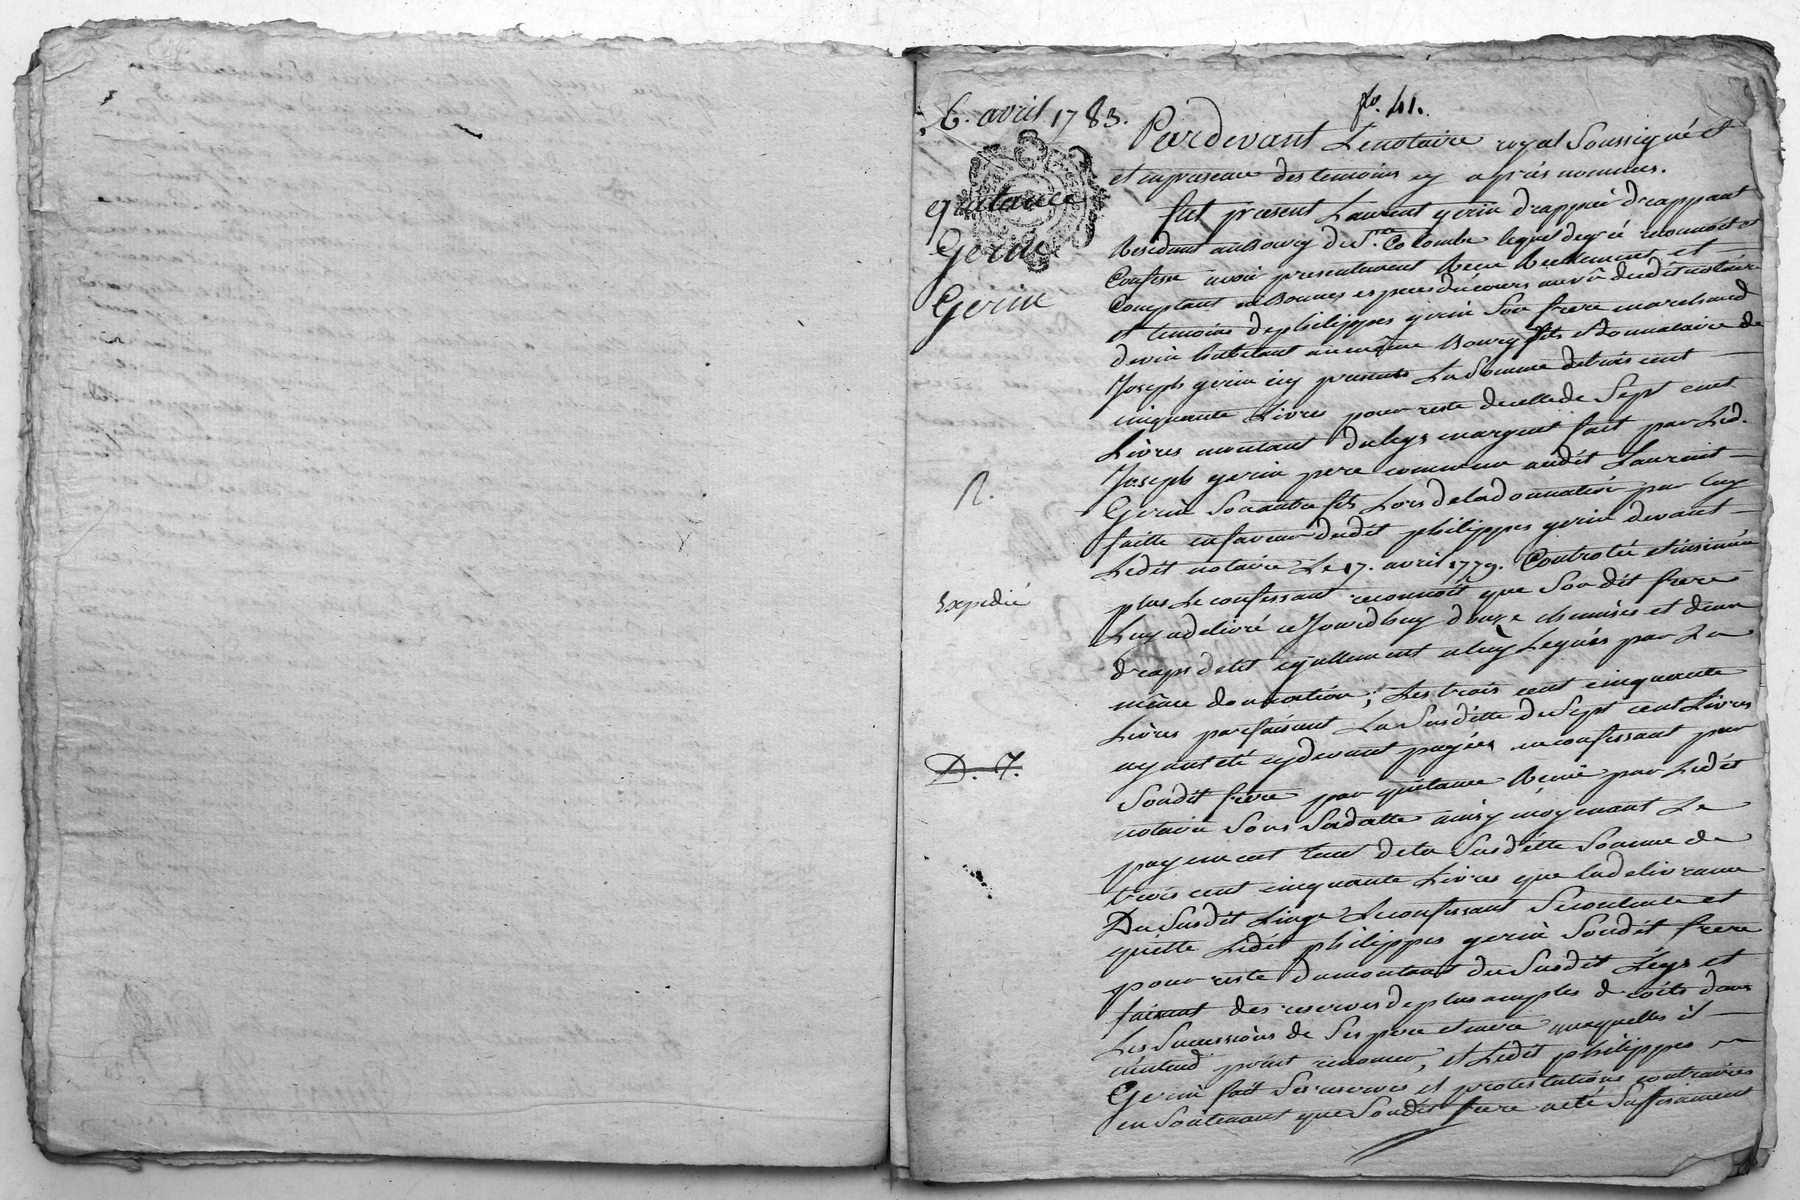 6. avril 1783.
fo. 41.
quitance
Gerin
Gerin
R.
Expedié
D. 7.
Pardevant Le notaire royal Soussigné et
et en presence des temoins cy après nommés.
fut present Laurent gerin drappier drappant
Residant au Bourg de Ste Colombe lequel de gré reconnoit et
Confesse avoir presentement Receu Reellement et
Comptant en Bonnes especes du cours au vû dudit notaire
et temoins de philippes gerin Son frere marchand
de vin habitant au même Bourg fils et Donnataire de
Joseph gerin icy present La Somme de trois cent
cinquante Livres pour reste de celle de Sept cent
Livres montant du legs marqué fait par Led.
Joseph gerin pere commun audit Laurent
Gerin Son autre fils Lors de la donnation par luy
faitte en faveur dudit philippes gerin devant
Ledit notaire Le 17. avril 1779. Controlée et insinuée
plus Le confessant reconnoit que Son dit frere
Luy a delivré ce Jourdhuy douze chemises et deux
draps de lit egallement a luy Legués par La
même donnation; Les trois cent cinquante
Livres parfaisant La Susditte de Sept cent Livres
ayant eté cy devant payées au confessant par
Sondit frere par quitance Receue par Ledit
notaire Sous Sa datte ainsy moyenant Le
payement tant de la Susditte Somme de
trois cent cinquante Livres que la delivrance
Du Susdit Linge Le confessant Se contente et
quitte Ledit philippes gerin Sondit frere
pour reste du montant du Susdit Légs et
faisant des reserves de plus amples droits dans
Les Successions de Ses pere et mere auxquelles il
n'entend point renoncer, et Ledit philippes
Gerin fait Ses reserves et protestations contraires
en Soutenant que Sondit frere a eté Suffisament